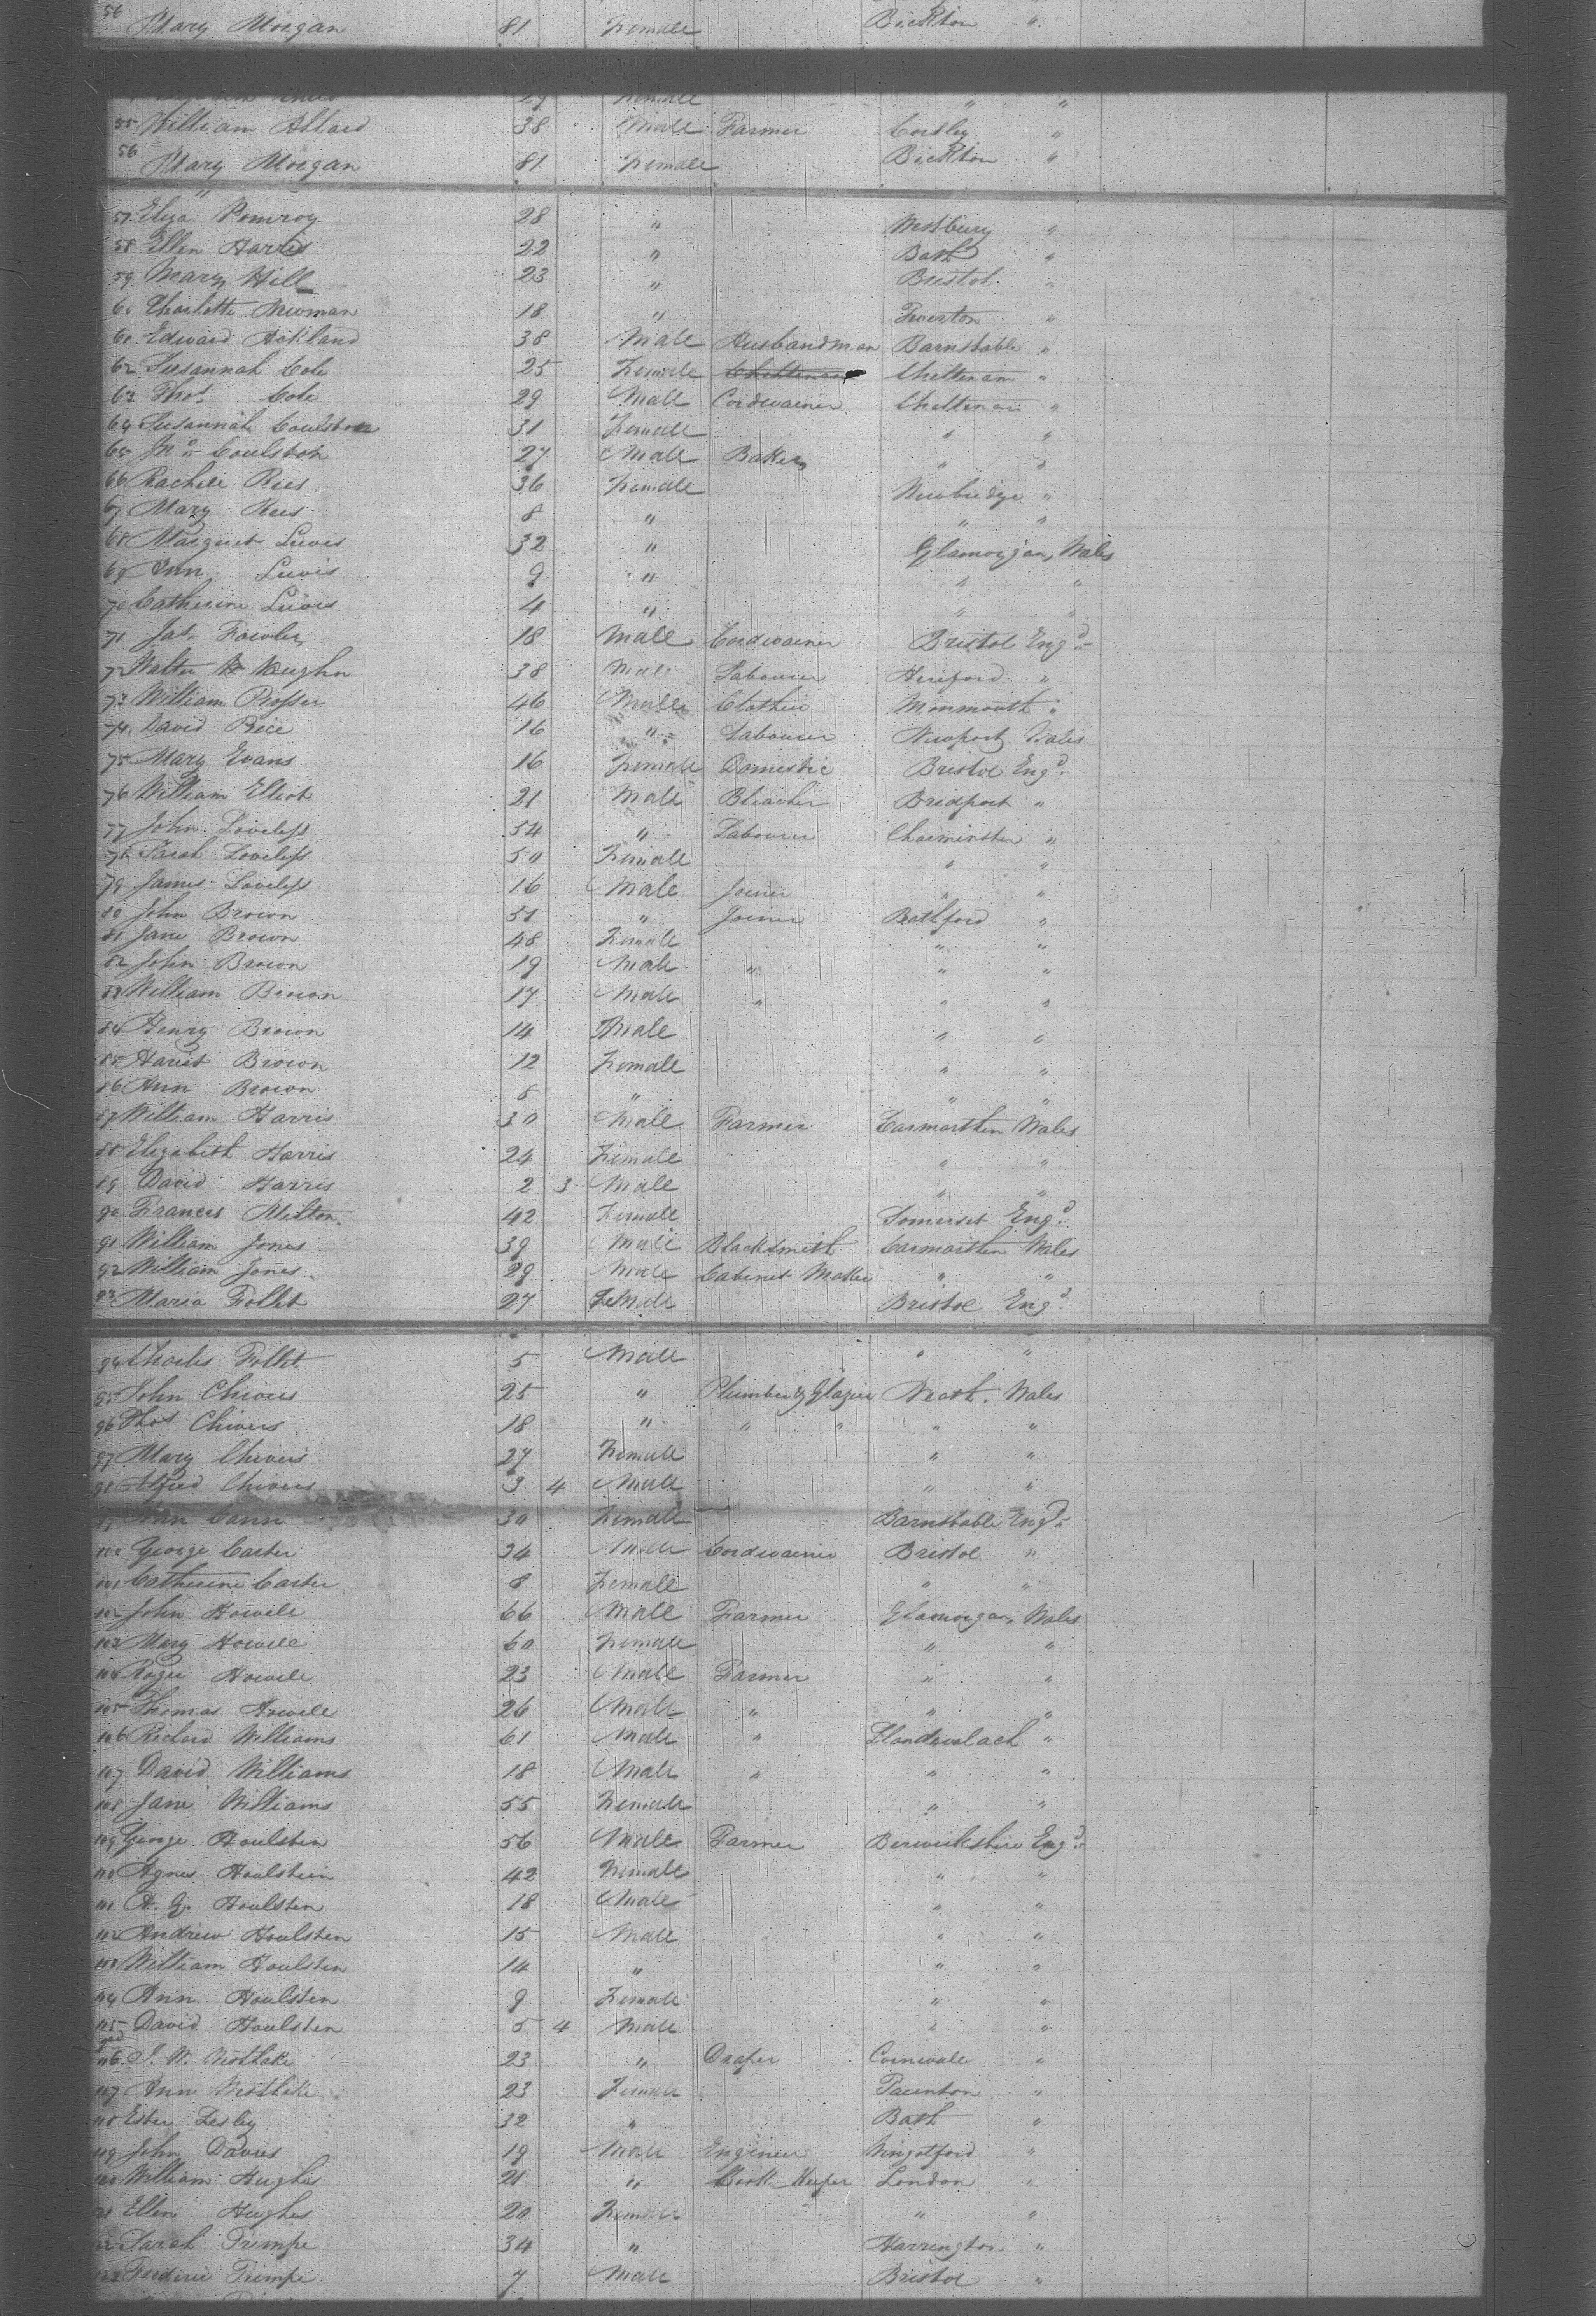 56 Mary Morgan 81 Female Bickton "
29 Female " "
55 William Allard 38 Male Farmer Corsley "
56 Mary Morgan 81 Female Bickton "
57 Eliza Pomroy 28 " Westbury "
58 Ellen Harris 22 " Bath "
59 Mary Hill 23 " Bristol "
60 Charlotte Newman 18 " Twerton "
61 Edward Ackland 38 Male Husbandman Barnstable "
62 Susannah Cole 25 Female Cheltenam Cheltenam "
63 Thos. Cole 29 Male Cordwainer Cheltenam "
64 Susannah Coulston 31 Female " "
65 Jno Coulston 27 Male Baker " "
66 Rachele Rees 36 Female Newbridge "
67 Mary Rees 8 " " "
68 Margret Lewis 32 " Glamorgan, Wales
69 Ann Lewis 9 " " "
70 Catherine Lewis 4 " " "
71 Jas. Fowler 18 Male Cordwainer Bristol Engd
72 Walter Vaughn 38 Male Labourer Hereford "
73 William Prosser 46 Male Clothier Monmouth "
74 David Price 16 " Labourer Newport Wales
75 Mary Evans 16 Female Domestic Bristol Engd
76 William Elliot 21 Male Bleacher Bridport "
77 John Loveless 54 " Labourer Charminster "
78 Sarah Loveless 50 Female " "
79 James Loveless 16 Male Joiner " "
80 John Brown 51 " Joiner Bathford "
81 Jane Brown 48 Female " "
82 John Brown 19 Male " " "
83 William Brown 17 Male " " "
84 Henry Brown 14 Male " "
85 Hariet Brown 12 Female " "
86 Ann Brown 8 " " "
87 William Harris 30 Male Farmer Carmarthen Wales
88 Elizabeth Harris 24 Female " "
89 David Harris 2 3 Male " "
90 Frances Milton 42 Female Somerset Engd
91 William Jones 39 Male Blacksmith Carmarthen Wales
92 William Jones 29 Male Cabinet Maker " "
93 Maria Follet 27 Female Bristol Engd
94 Charles Follet 5 Male " "
95 John Chivers 25 " Plumber & Glazier Neath, Wales
96 Thos Chivers 18 " " " " "
97 Mary Chivers 27 Female " "
98 Alfred Chivers 3 4 Male " "
99 Ann Cann 30 Female Barnstable Engd
100 George Carter 34 Male Cordwainer Bristol "
101 Catherine Carter 8 Female " "
102 John Howell 66 Male Farmer Glamorgan, Wales
103 Mary Howell 60 Female " "
104 Roger Howell 23 Male Farmer " "
105 Thomas Howell 26 Male " " "
106 Richard Williams 61 Male " "
107 David Williams 18 Male " " "
108 Jane Williams 55 Female " "
109 George Houlsten 56 Male Farmer Berwickshire Engd
110 Agnes Houlstein 42 Female " "
111 A. G. Houlsten 18 Male " "
112 Andrew Houlsten 15 Male " "
113 William Houlsten 14 " " "
114 Ann Houlsten 9 Female " "
115 David Houlsten 5 4 Male " "
116 J. W. Westlake 23 " Draper Cornwall "
117 Ann Westlake 23 Female Taunton "
118 Ester Lesley 32 " Bath "
119 John Davies 19 Male Engineer "
120 William Hughes 21 " Book Keeper London "
121 Ellen Hughes 20 Female " "
122 Sarah Trimpe 34 " Harrington "
123 Frederic Trimpe 7 Male Bristol "